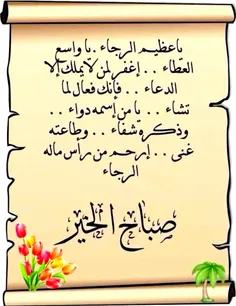 ياعظيم الرجاء .يا واسع
العطاء . . إغفر لمن لايملك إلا
الدعاء . . فإنك فعال لما
تشاء . . يا من إسمه دواء . .
وذكره شفاء . . وطاعته
غنى . . إرحم من رأس ماله
الرجاء
صباح الخير